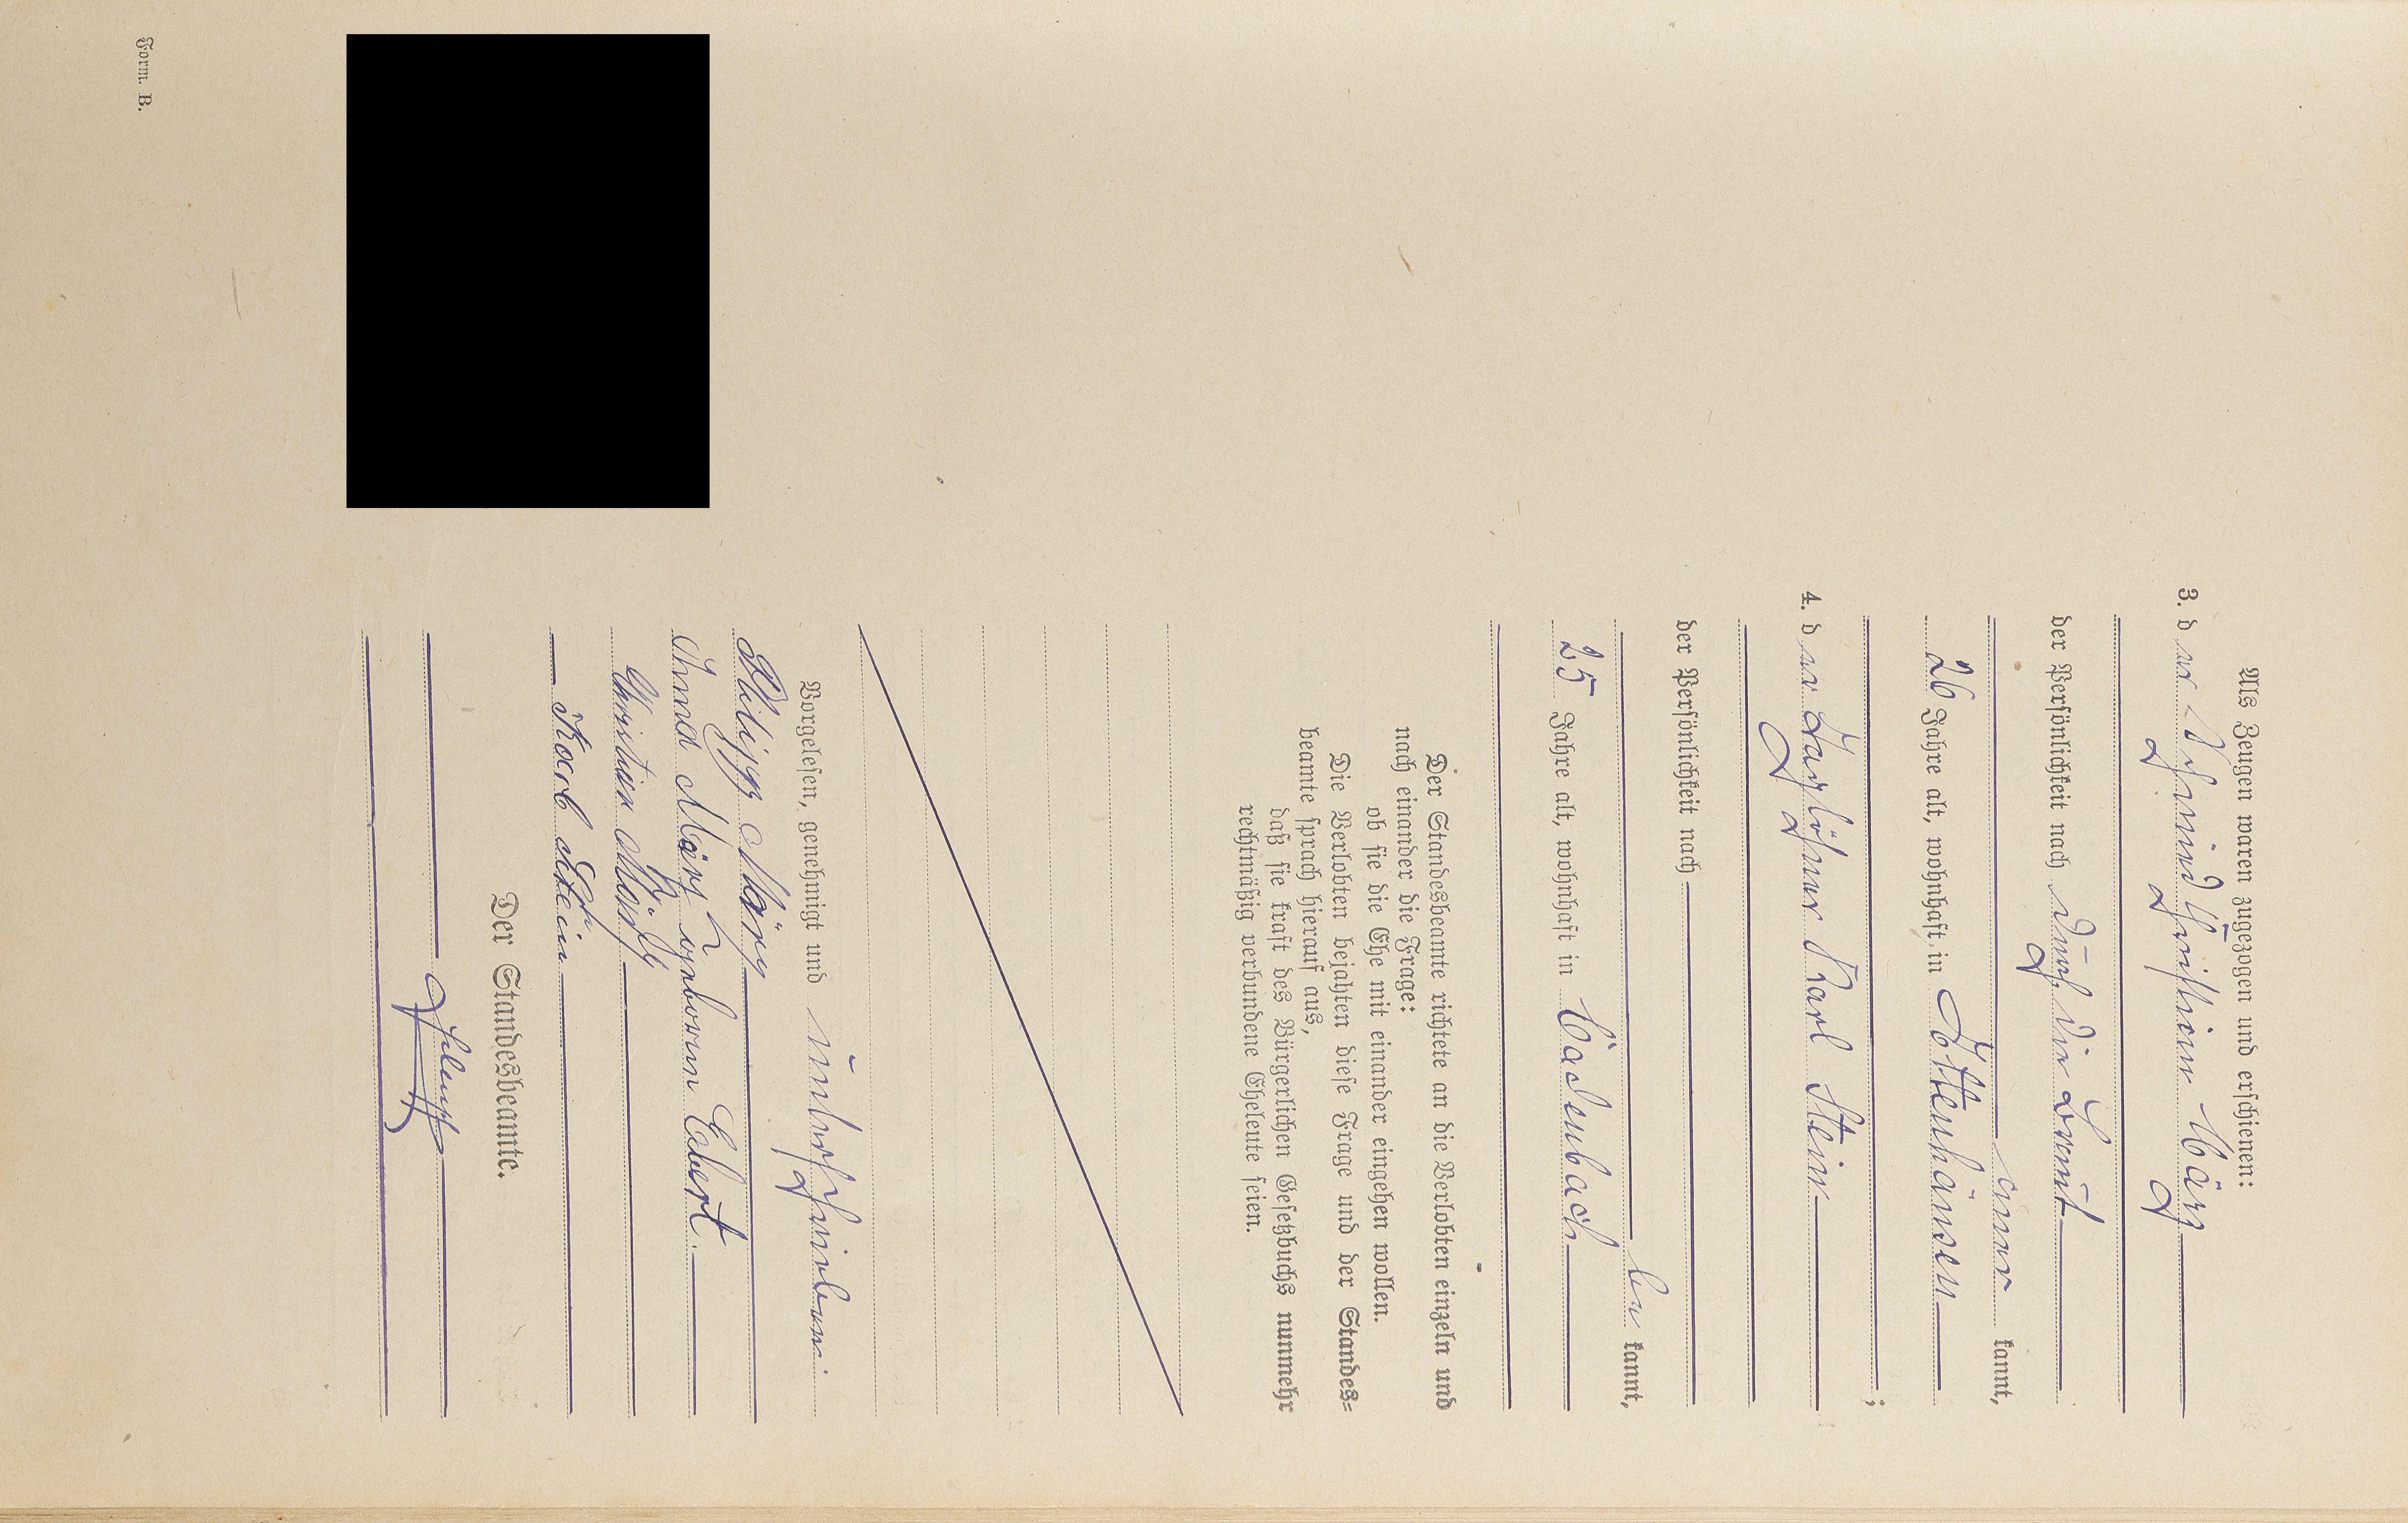 Als Zeugen waren zugezogen und erschienen:
3. der Schmied Christian März
der Persönlichkeit nach durch die Braut
aner kannt,
26 Jahre alt, wohnhaft in Ottenhausen
;
4. der Taglöhner Karl Stein
der Persönlichkeit nach
be kannt,
25 Jahre alt, wohnhaft in Cadenbach
Der Standesbeamte richtete an die Verlobten einzeln und
nach einander die Frage:
ob sie die Ehe mit einander eingehen wollen.
Die Verlobten bejahten diese Frage und der Standes=
beamte sprach hierauf aus,
daß sie kraft des Bürgerlichen Gesetzbuchs nunmehr
rechtmäßig verbundene Eheleute seien.
Vorgelesen, genehmigt und unterschrieben:
Philipp März
März geboren Ebert.
Christian März
Karl Stein
Der Standesbeamte.
Form. B.